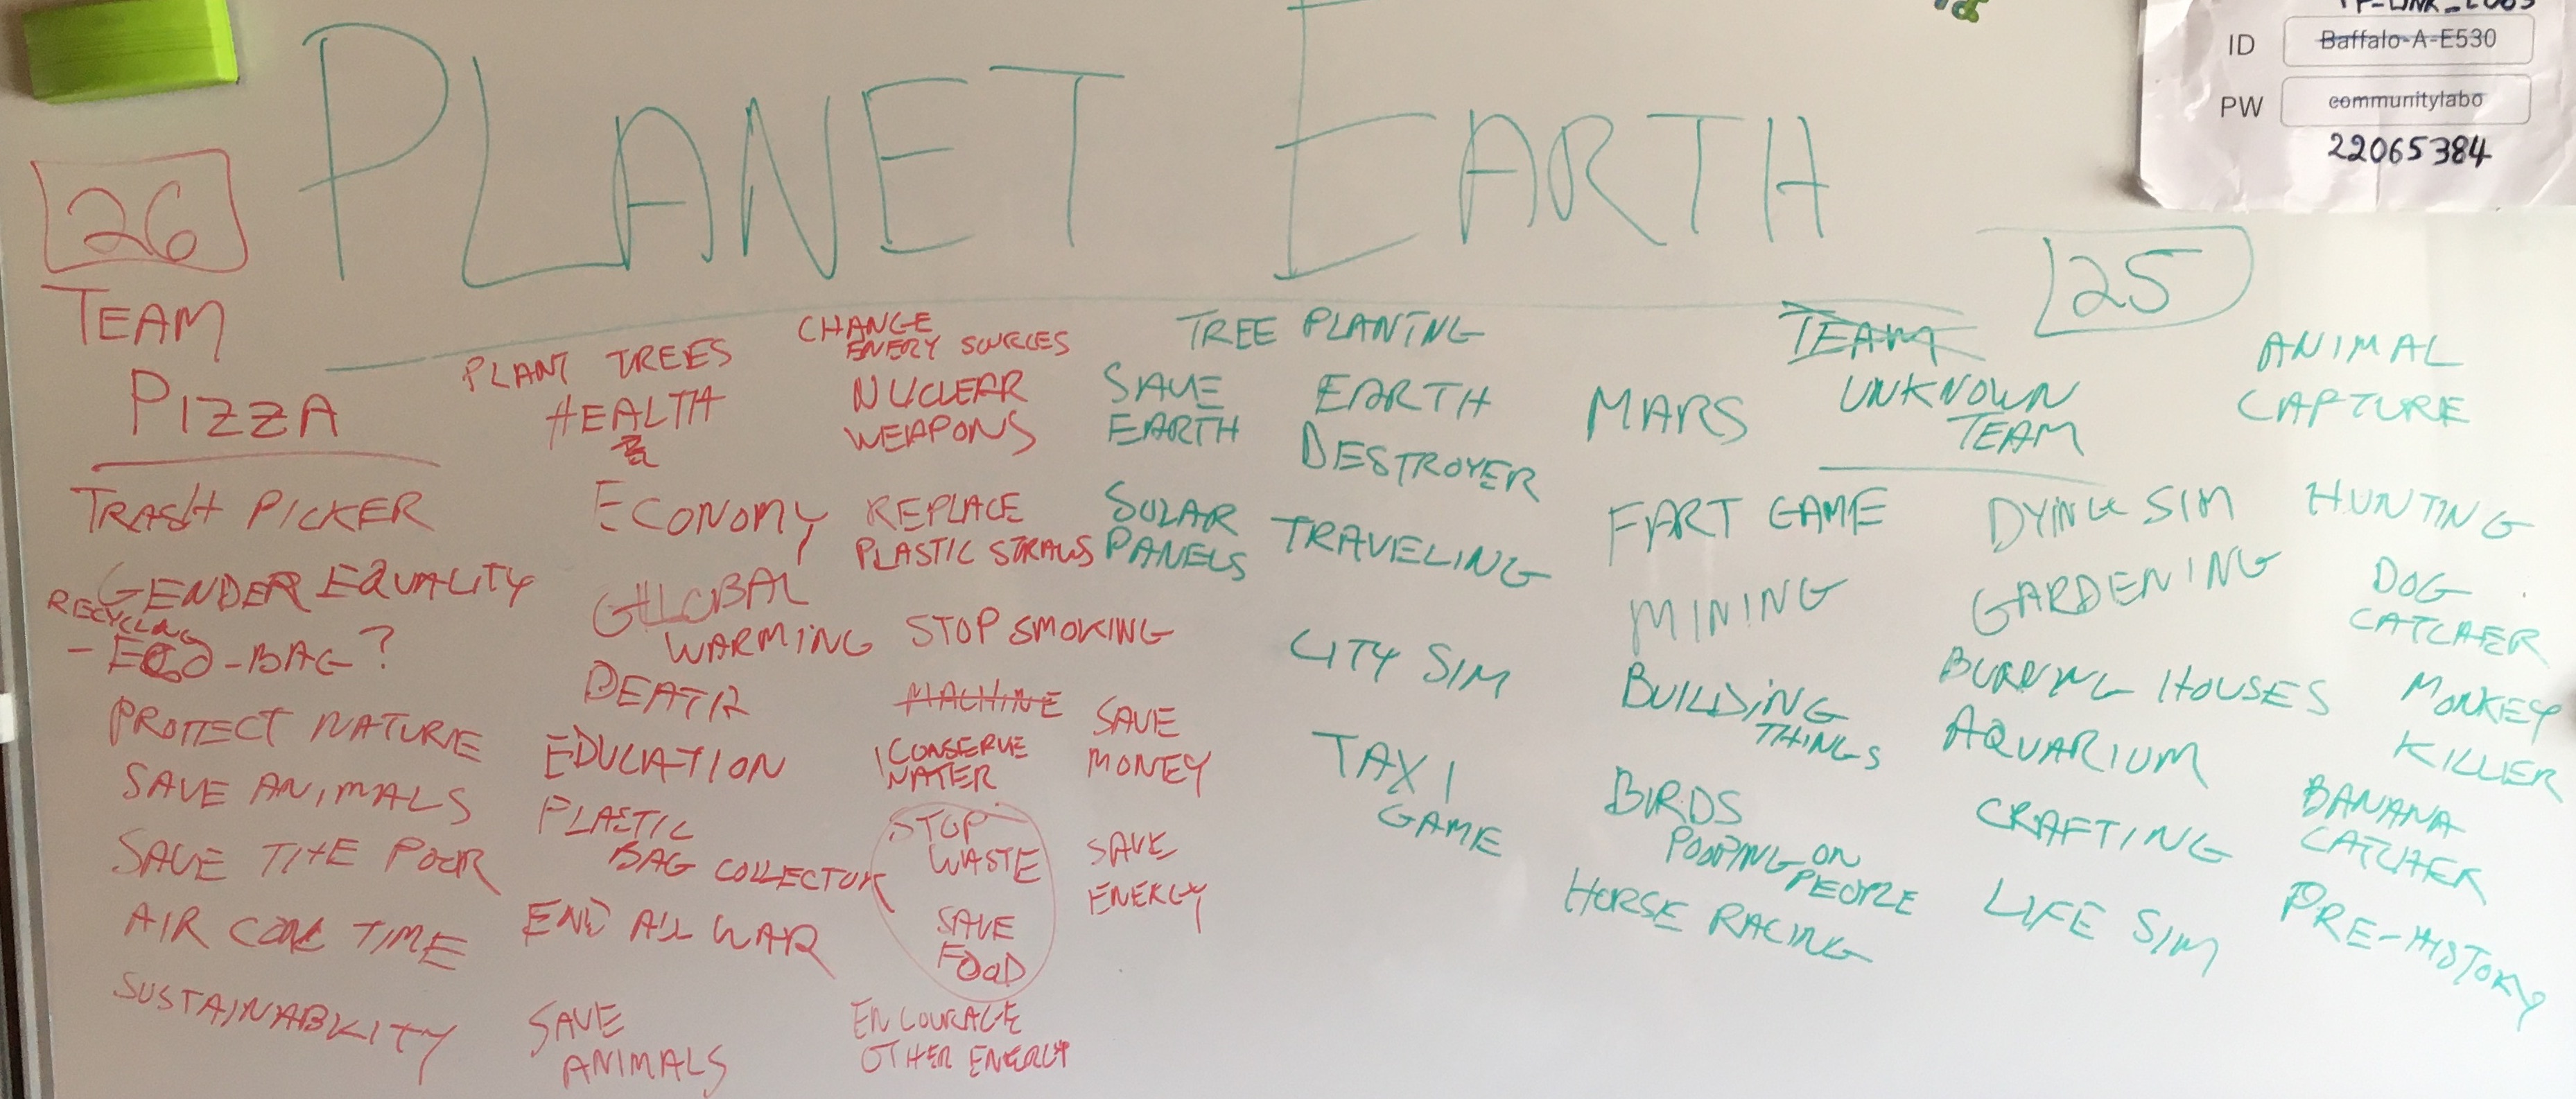 PLANET EARTH
ID Baffalo-A-E530
PW communitylabo
22065384
26
TEAM
PIZZA
TRASH PICKER
GENDER EQUALITY
RECYCLING
- ECO-BAG?
PROTECT NATURE
SAVE ANIMALS
SAVE THE POOR
AIR CON TIME
SUSTAINABILITY
PLANT TREES
HEALTH
ECONOMY
GLOBAL
WARMING
DEATH
EDUCATION
PLASTIC
BAG COLLECTOR
END ALL WAR
SAVE
ANIMALS
CHANGE
ENERY SOURCES
NUCLEAR
WEAPONS
REPLACE
PLASTIC STRAWS
STOP SMOKING
MACHINE
CONSERVE
WATER
STOP
WASTE
SAVE
FOOD
ENCOURAGE
OTHER ENERGY
SAVE
MONEY
SAVE
ENERGY
25
TEAM
UNKNOWN
TEAM
TREE PLANTNG
SAVE
EARTH
SOLAR
PANELS
EARTH
DESTROYER
TRAVELING
CITY SIM
TAXI
GAME
MARS
FART GAME
MINING
BUILDING
THINGS
BIRDS
POOPING ON
PEOPLE
HORSE RACING
DYING SIM
GARDENING
BURNING HOUSES
AQUARIUM
CRAFTING
LIFE SIM
ANIMAL
CAPTURE
HUNTING
DOG
CATCHER
MONKEY
KILLER
BANANA
CATCHER
PRE-HISTORY